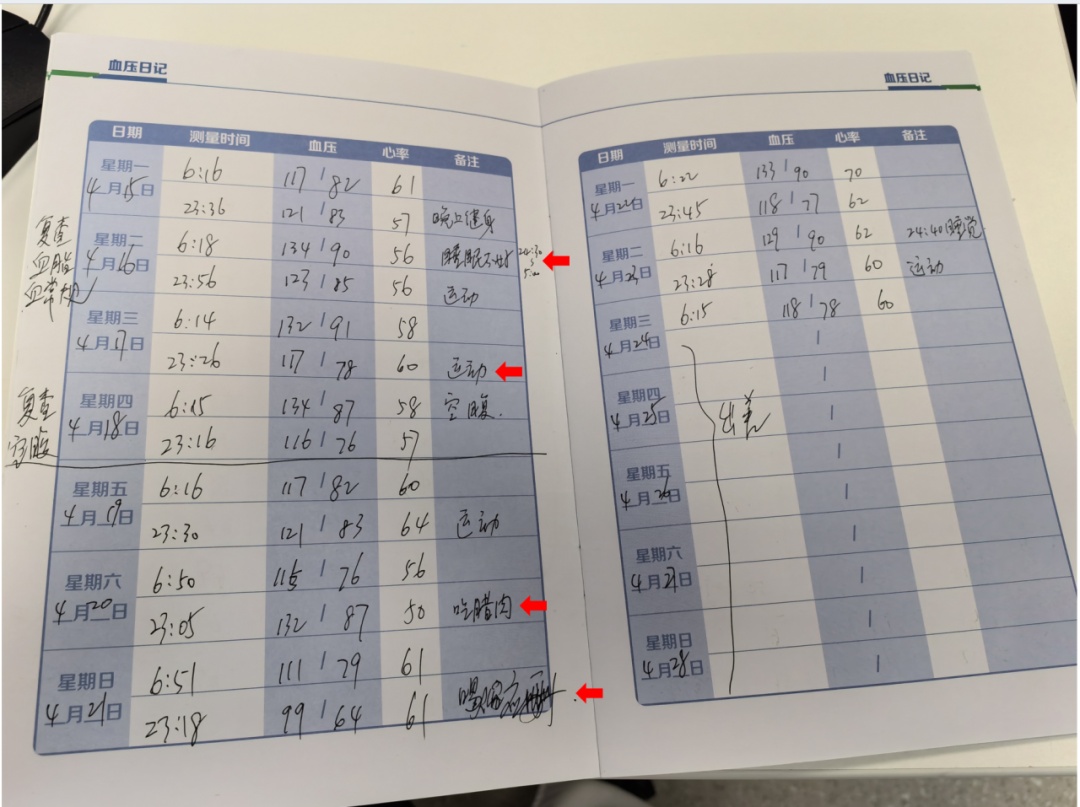 血压日记
日期 测量时间 血压 心率 备注
星期一 4月15日 6:16 117/82 61
23:36 121/83 57 晚上健身
复查 血脂 血常规
星期二 4月16日 6:18 134/90 56 睡眠不好 24:30 5:00
23:56 123/85 56 运动
星期三 4月17日 6:14 132/91 58
23:26 117/78 60 运动
复查 空腹
星期四 4月18日 6:15 134/87 58 空腹.
23:16 116/76 57
星期五 4月19日 6:16 117/82 60
23:30 121/83 64 运动
星期六 4月20日 6:50 115/76 56
23:05 132/87 50 吃腊肉
星期日 4月21日 6:51 111/79 61
23:18 99/64 61 喝酒
血压日记
日期 测量时间 血压 心率 备注
星期一 4月22日 6:22 133/90 70
23:45 118/77 62
星期二 4月23日 6:16 129/90 62 24:40睡觉
23:28 117/79 60 运动
星期三 4月24日 6:15 118/78 60
/
星期四 4月25日 /
出差
/
星期五 4月26日 /
/
星期六 4月27日 /
/
星期日 4月28日 /
/